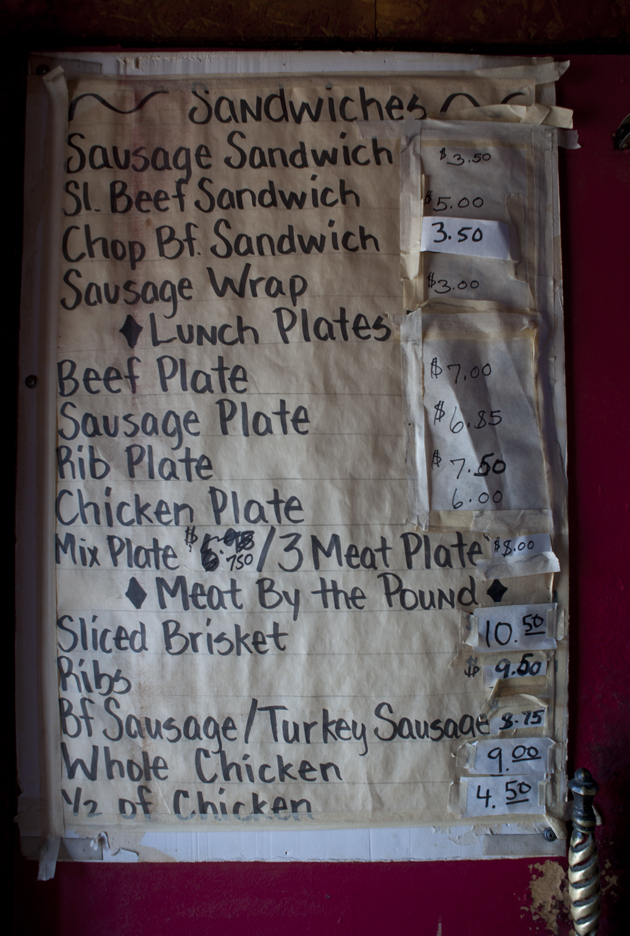 Sandwiches
Sausage Sandwich $3.50
Sl. Beef Sandwich $5.00
Chop Bf. Sandwich 3.50
Sausage Wrap $3.00
♦ Lunch Plates
Beef Plate $7.00
Sausage Plate $6.85
Rib Plate $7.50
Chicken Plate 6.00
Mix Plate $ 750 / 3 Meat Plate $8.00
♦ Meat By the Pound ♦
Sliced Brisket 10.50
Ribs $ 9.50
Bf Sausage/Turkey Sausage 8.75
Whole Chicken 9.00
1/2 of Chicken 4.50